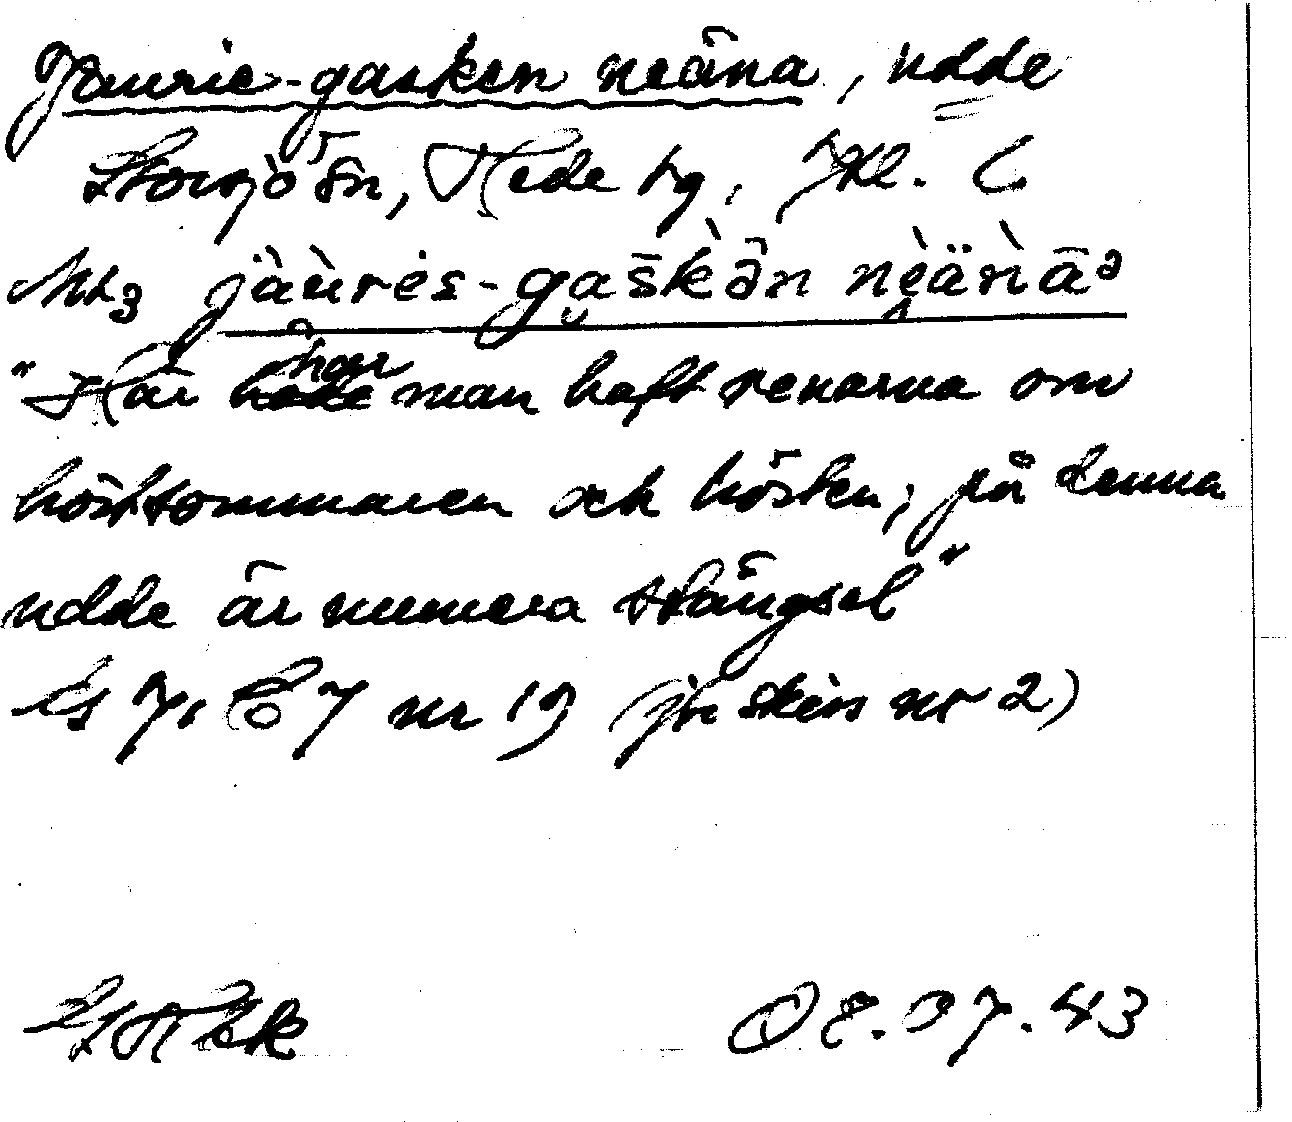 Jaurie-gasken neäna, udde
Storsjön, Hede tg, Jtl. L
Mtz jàùrès-gaskə̄n nèänàə
"Här har man haft renarna om
höstsommaren och hösten, på denna
udde är numera stängsel"
nr 19 (jfr skiss nr 2)
OE.